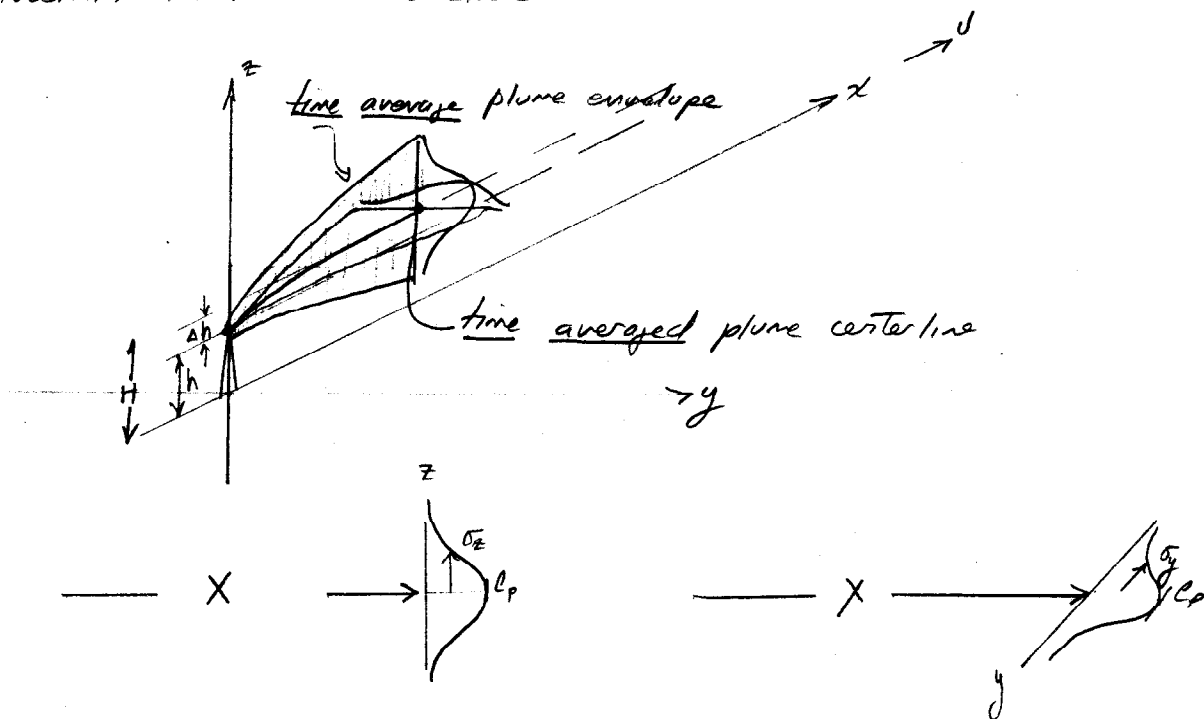 z
U
x
time average plume envelope
Δh
h
H
time averaged plume centerline
y
z
σz
Cp
X
X
σy
Cp
y